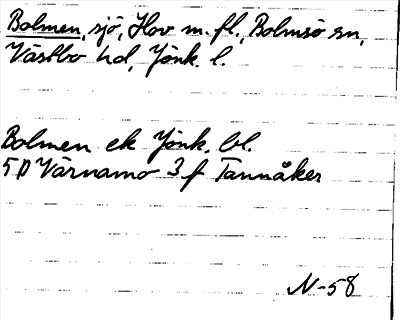 Bolmen, sjö, Hov m. fl., Bolmsö sn,
Västbo hd, Jönk. l.
Bolmen ek Jönk. bl.
5 D Värnamo 3 f Tannåker
N-58